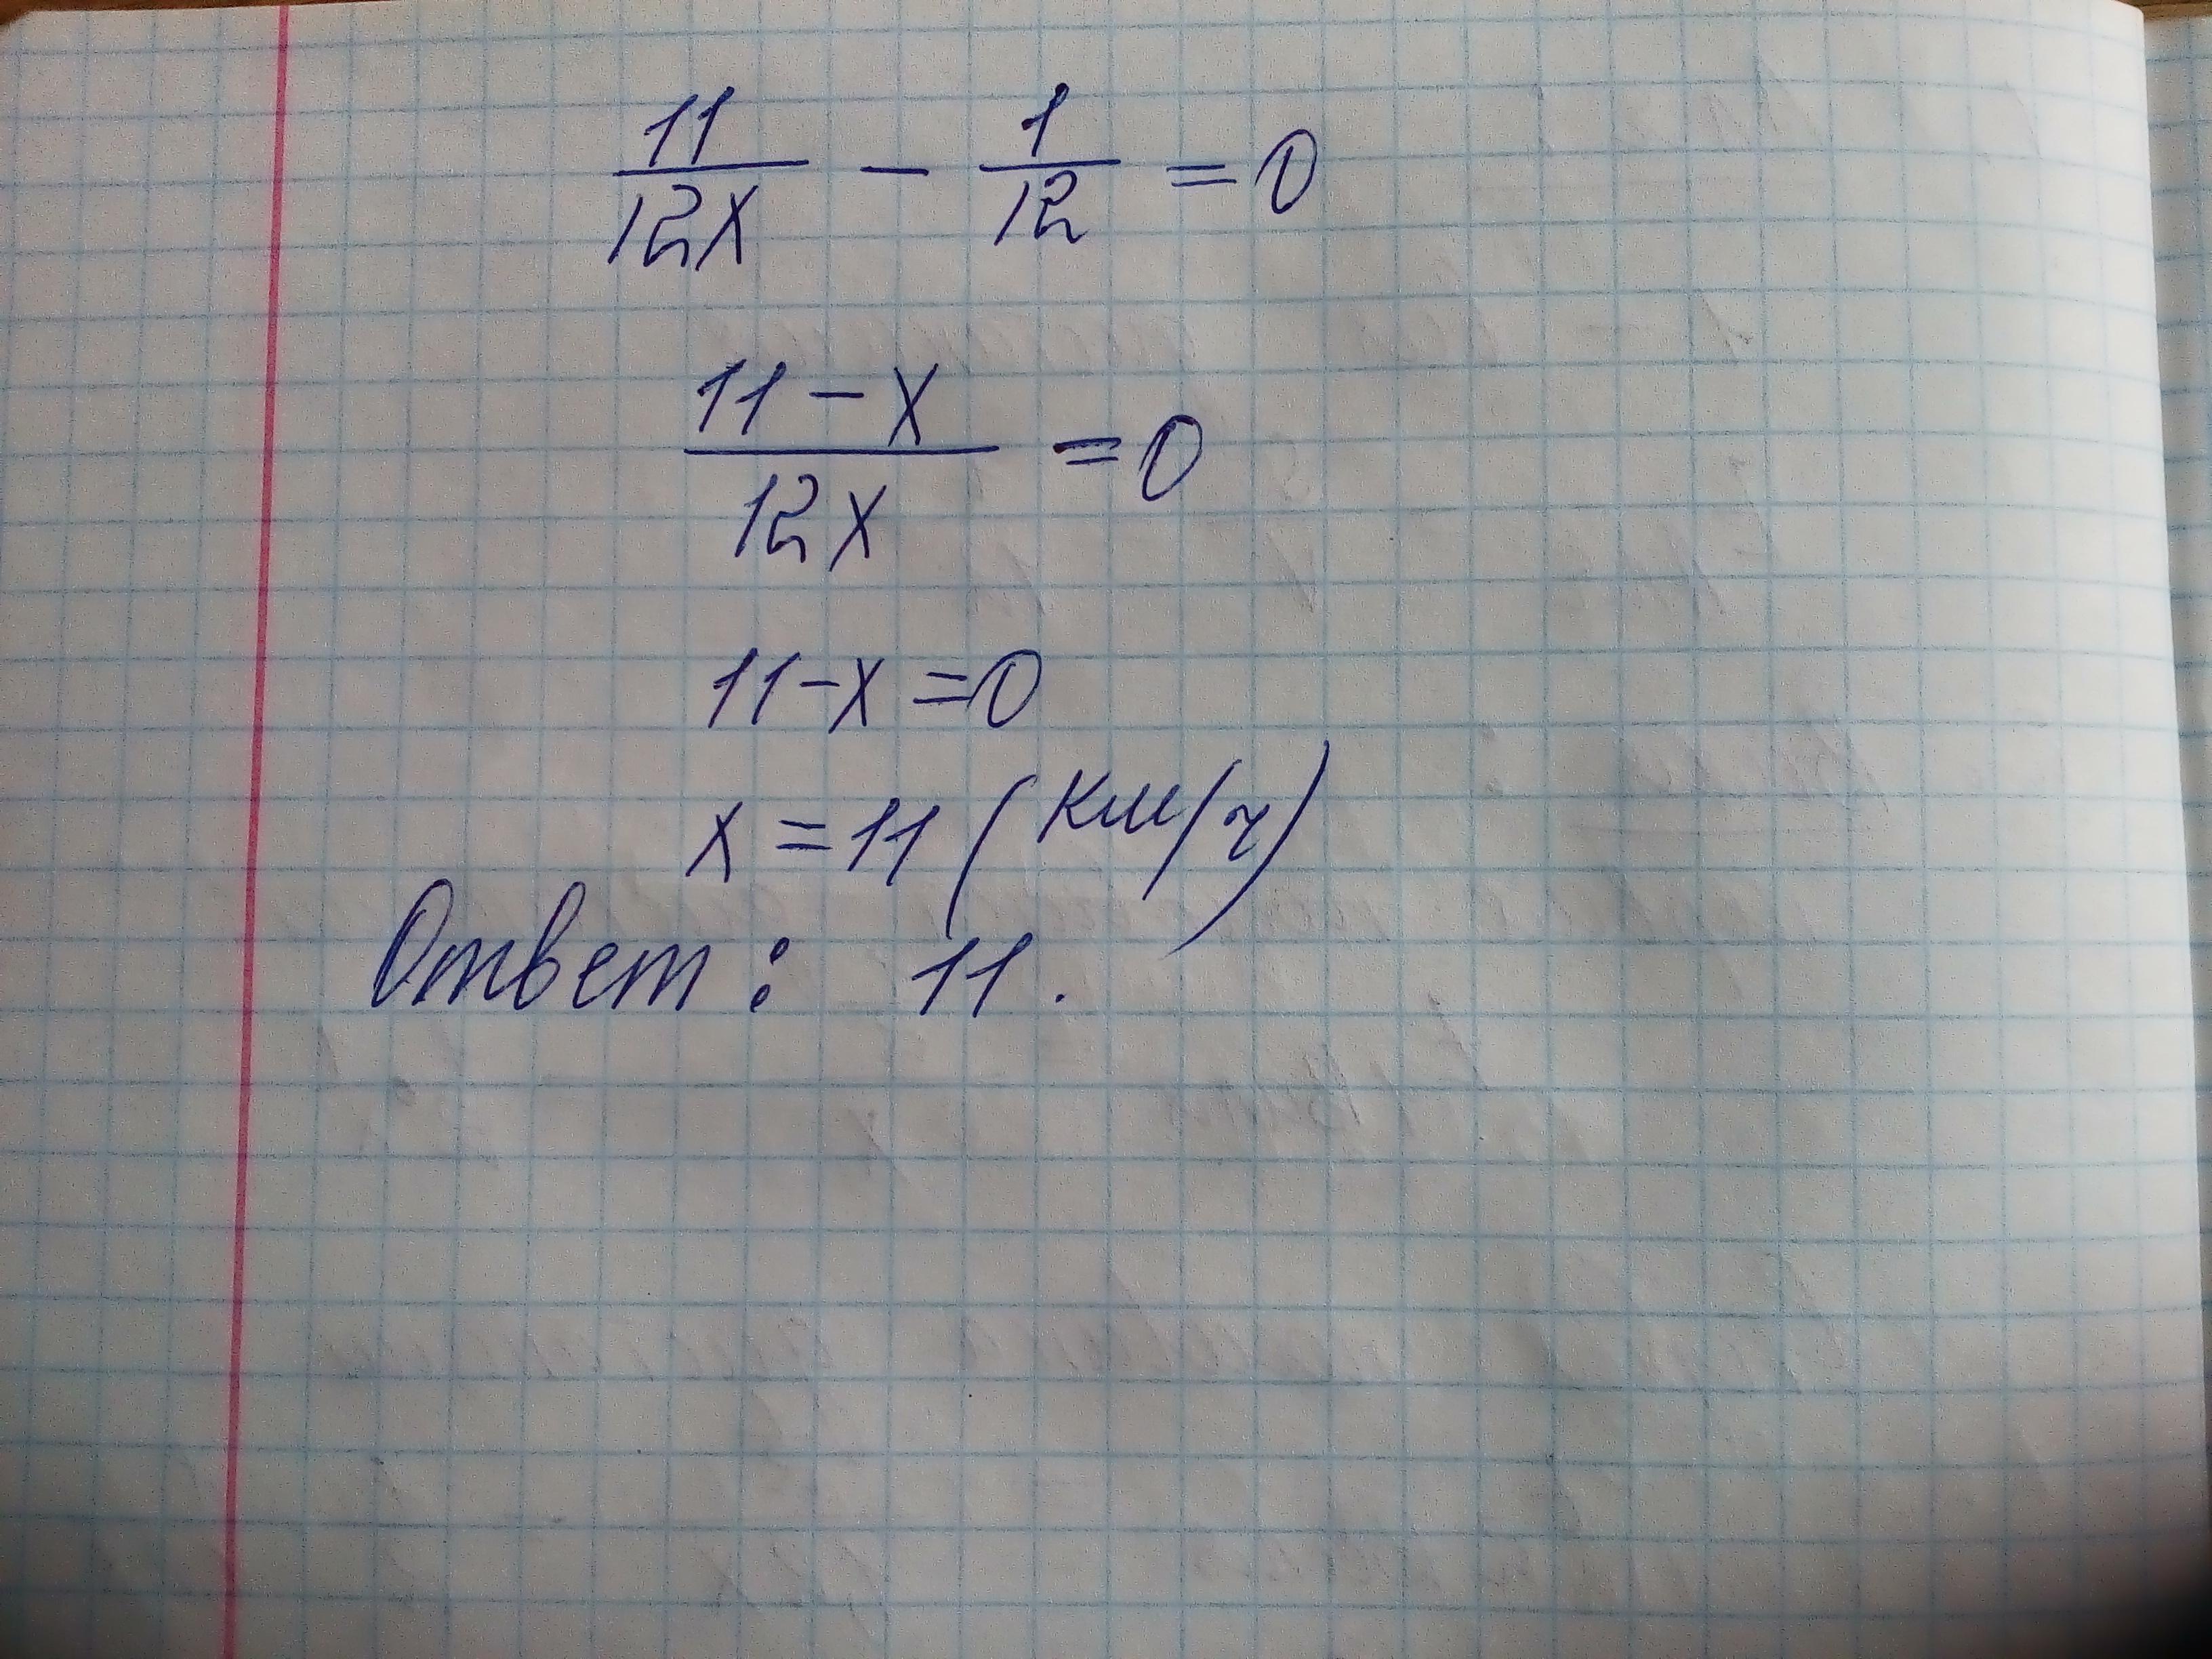 11/12x - 1/12 = 0
11 - x/12x = 0
11 - x = 0
x = 11 (км/ч)
Ответ: 11.